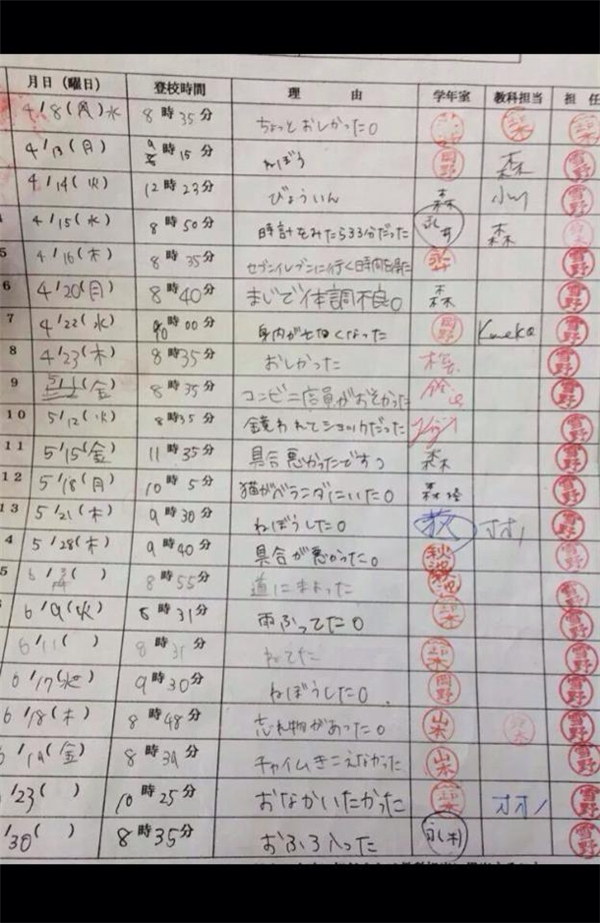 月日（曜日） 登校時間 理由 学年室 教科担当 担任
4/8(月)水 8時35分 ちょっとおしかった。
4/13(月) 9時15分 ねぼう 岡野 森 雪野
4/14(火) 12時23分 びょういん 森 小川 雪野
4/15(水) 8時50分 時計をみたら33分だった 永井 森
5 4/16(木) 8時35分 セブンイレブンに行く時間を 雪野
6 4/20(月) 8時40分 まじで体調不良。 森 雪野
7 4/22(水) 10時00分 身内が亡くなった 岡野 雪野
8 4/23(木) 8時35分 おしかった 雪野
9 (金) 8時35分 コンビニ店員がおそかった 雪野
10 5/12(火) 8時35分 鏡われてショックだった 雪野
11 5/15(金) 11時35分 具合悪かったですっ 森 雪野
12 5/18(月) 10時5分 猫がベランダにいた。 森 雪野
13 5/21(木) 9時30分 ねぼうした。 荻 オオノ 雪野
4 5/28(木) 9時40分 具合が悪かった。 雪野
5 6/ ( ) 8時55分 道にまよった 雪野
6/9(火) 8時31分 雨ふってた。 鈴木 雪野
6/11( ) 8時31分 ねてた 鈴木 雪野
6/17(水) 9時30分 ねぼうした。 岡野 雪野
6/18(木) 8時48分 忘れ物があった。 山本 鈴木 雪野
6/19(金) 8時39分 チャイムきこえなかった 山本 雪野
/23( ) 10時25分 おなかいたかった 鈴木 オオノ 雪野
/30( ) 8時35分 おふろ入った 雪野